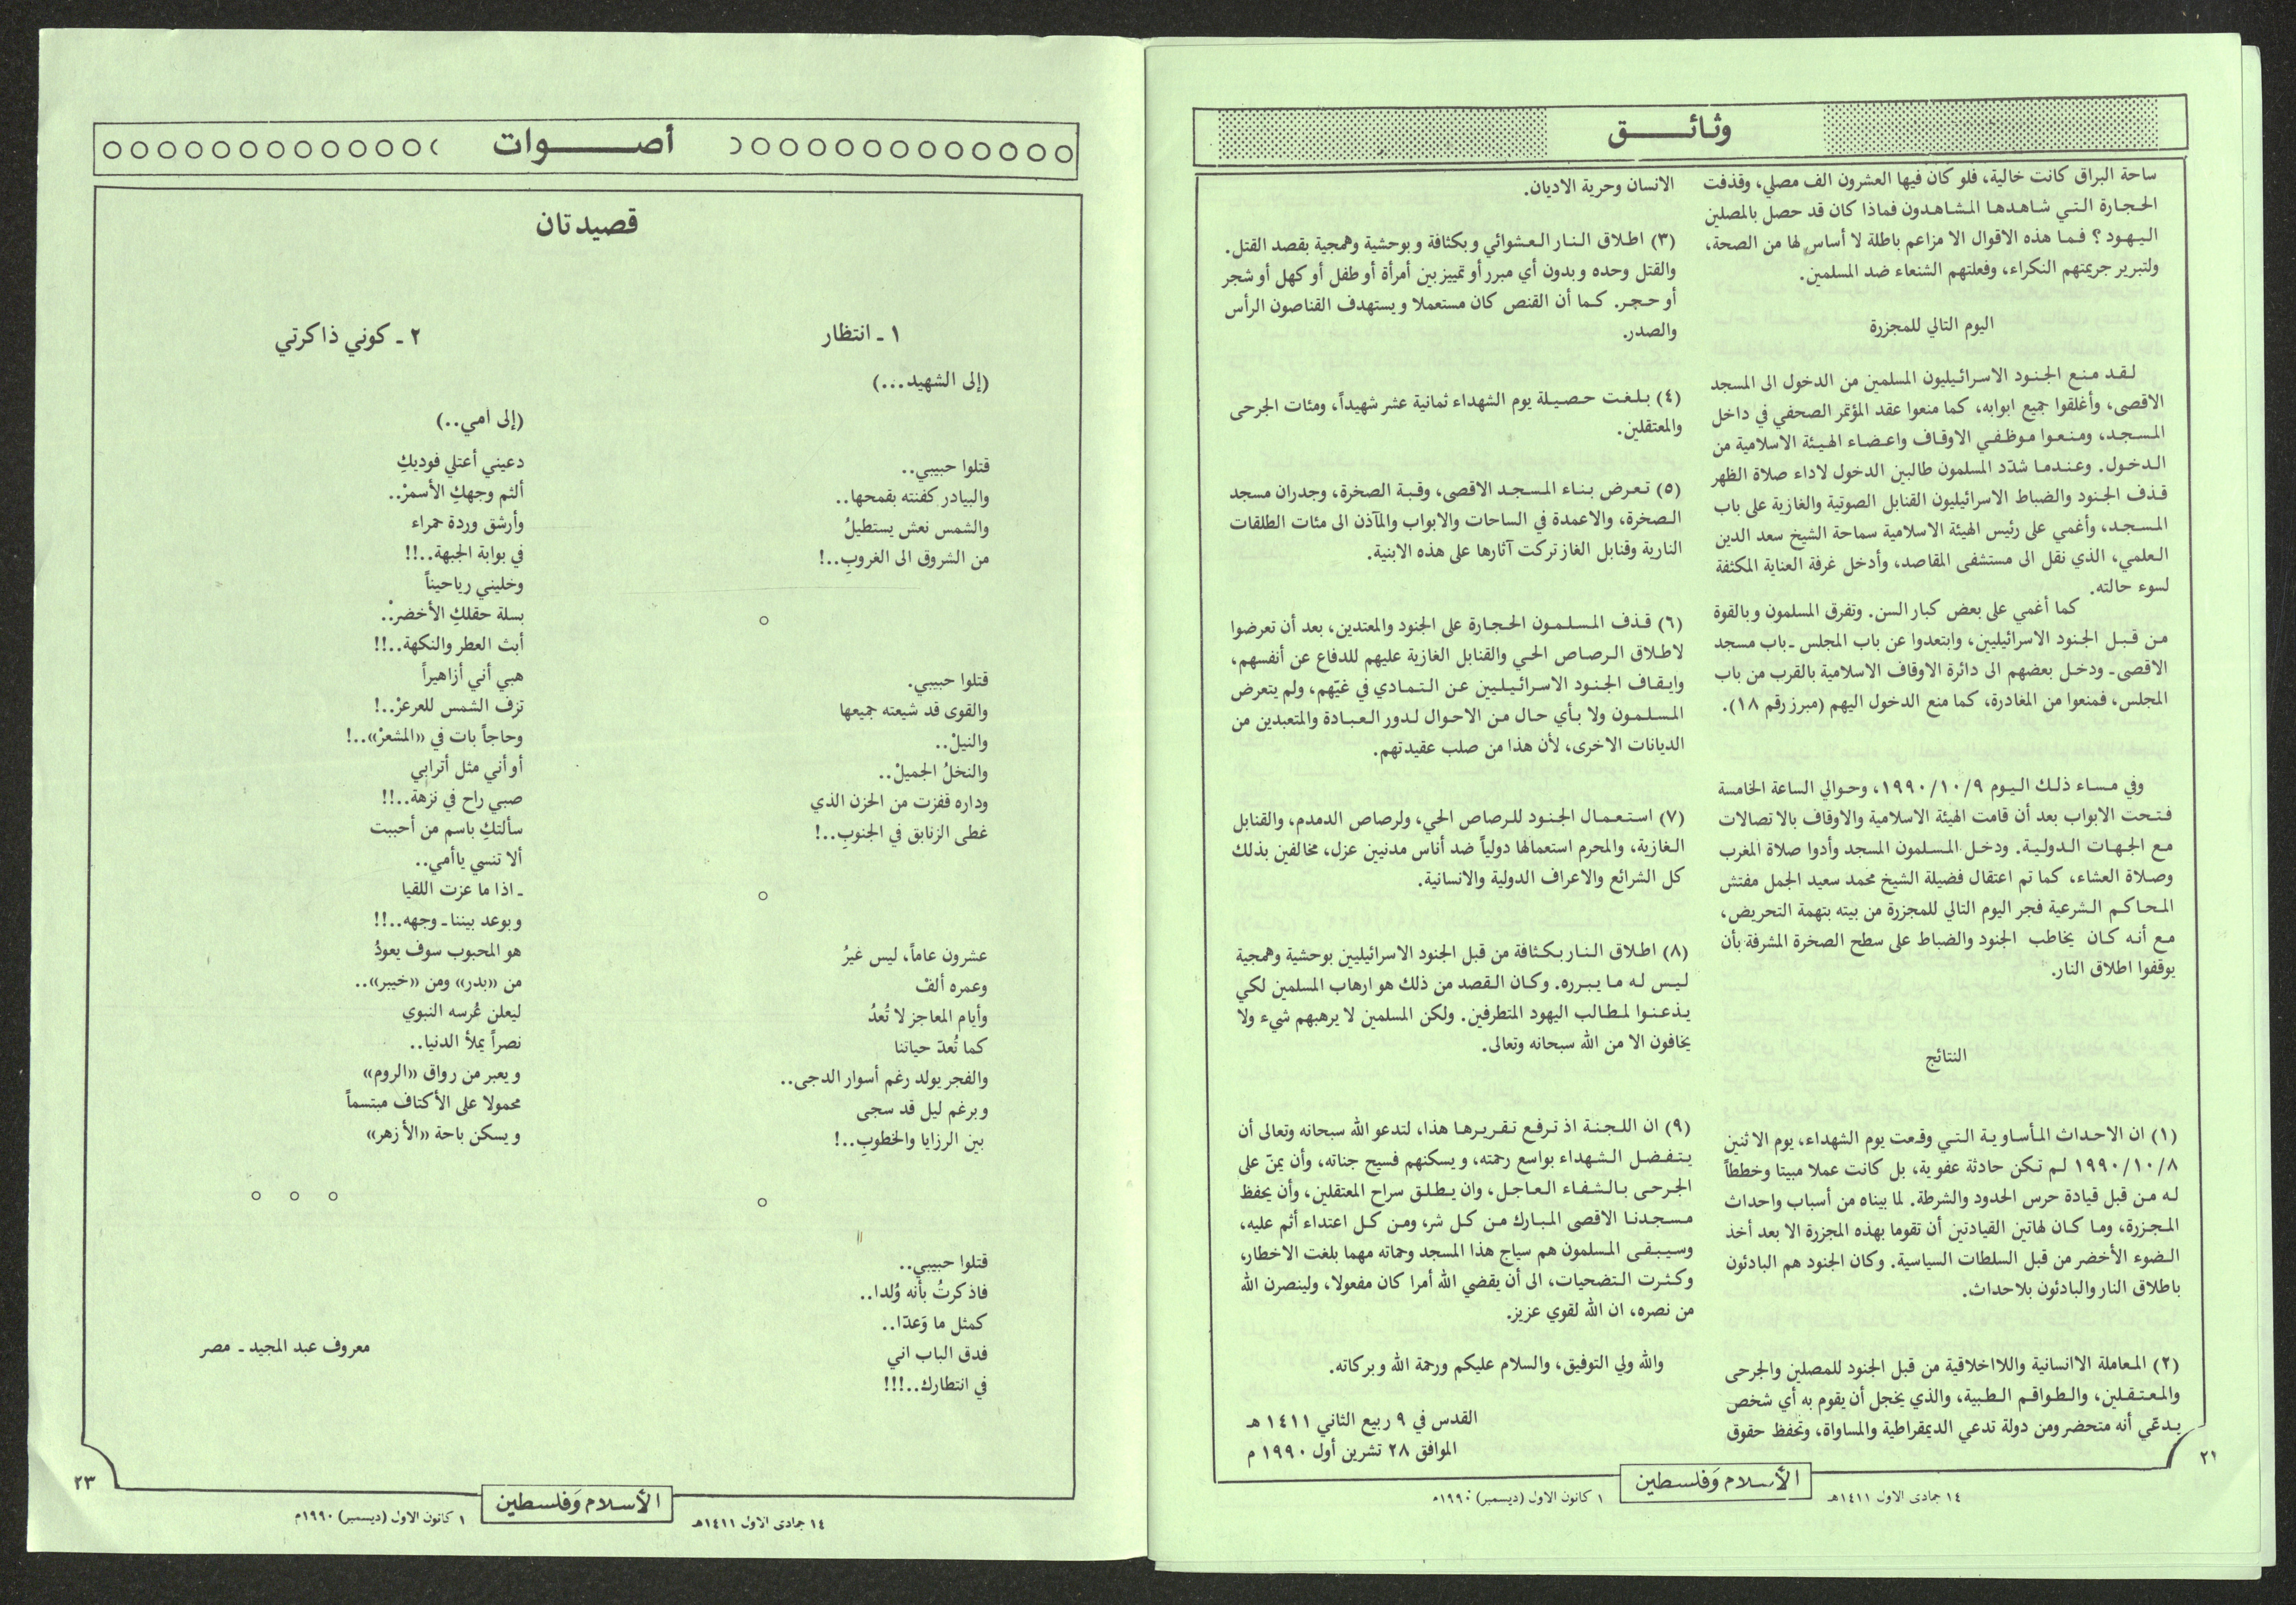 وثائق
ساحة البراق كانت خالية، فلو كان فيها العشرون الف مصلي، وقذفت
الحجارة التي شاهدها المشاهدون فماذا كان قد حصل بالمصلين
اليهود؟ فما هذه الاقوال الا مزاعم باطلة لا أساس لها من الصحة،
ولتبرير جريمتهم النكراء، وفعلتهم الشنعاء ضد المسلمين.
اليوم التالي للمجزرة
لقد منع الجنود الاسرائيليون المسلمين من الدخول الى المسجد
الاقصى، وأغلقوا جميع ابوابه، كما منعوا عقد المؤتمر الصحفي في داخل
المسجد، ومنعوا موظفي الاوقاف واعضاء الهيئة الاسلامية من
الدخول. وعندما شدّد المسلمون طالبين الدخول لاداء صلاة الظهر
قذف الجنود والضباط الاسرائيليون القنابل الصوتية والغازية على باب
المسجد، وأغمي على رئيس الهيئة الاسلامية سماحة الشيخ سعد الدين
العلمي، الذي نقل الى مستشفى المقاصد، وأدخل غرفة العناية المكثفة
لسوء حالته.
كما أغمي على بعض كبار السن. وتفرق المسلمون وبالقوة
من قبل الجنود الاسرائيليين، وابتعدوا عن باب المجلس ـ باب مسجد
الاقصى ـ ودخل بعضهم الى دائرة الاوقاف الاسلامية بالقرب من باب
المجلس، فمنعوا من المغادرة، كما منع الدخول اليهم (مبرز رقم ١٨).
وفي مساء ذلك اليوم ١٩٩٠/١٠/٩، وحوالي الساعة الخامسة
فتحت الابواب بعد أن قامت الهيئة الاسلامية والاوقاف بالاتصالات
مع الجهات الدولية. ودخل المسلمون المسجد وأدوا صلاة المغرب
وصلاة العشاء، كما تم اعتقال فضيلة الشيخ محمد سعيد الجمل مفتش
المحاكم الشرعية فجر اليوم التالي للمجزرة من بيته بتهمة التحريض،
مع أنه كان يخاطب الجنود والضباط على سطح الصخرة المشرفة بأن
يوقفوا اطلاق النار.
النتائج
(١) ان الاحداث المأساوية التي وقعت يوم الشهداء، يوم الاثنين
١٩٩٠/١٠/٨ لم تكن حادثة عفوية، بل كانت عملا مبيتا وخططاً
له من قبل قيادة حرس الحدود والشرطة. لما بيناه من أسباب واحداث
المجزرة، وما كان لهاتين القيادتين أن تقوما بهذه المجزرة الا بعد أخذ
الضوء الأخضر من قبل السلطات السياسية. وكان الجنود هم البادئون
باطلاق النار والبادئون بلاحداث.
(٢) المعاملة الاانسانية واللااخلاقية من قبل الجنود للمصلين والجرحى
والمعتقلين، والطواقم الطبية، والذي يخجل أن يقوم به أي شخص
يدعّي أنه متحضر ومن دولة تدعي الديمقراطية والمساواة، وتحفظ حقوق
الانسان وحرية الاديان.
(٣) اطلاق النار العشوائي وبكثافة وبوحشية وهمجية بقصد القتل.
والقتل وحده وبدون أي مبرر أو تمييز بين أمرأة أو طفل أو كهل أو شجر
أو حجر. كما أن القنص كان مستعملا ويستهدف القناصون الرأس
والصدر.
(٤) بلغت حصيلة يوم الشهداء ثمانية عشر شهيداً، ومئات الجرحى
والمعتقلين.
(٥) تعرض بناء المسجد الاقصى، وقبة الصخرة، وجدران مسجد
الصخرة، والاعمدة في الساحات والابواب والمآذن الى مئات الطلقات
النارية وقنابل الغاز تركت آثارها على هذه الابنية.
(٦) قذف المسلمون الحجارة على الجنود والمعتدين، بعد أن تعرضوا
لاطلاق الرصاص الحي والقنابل الغازية عليهم للدفاع عن أنفسهم،
وايقاف الجنود الاسرائيليين عن التمادي في غيّهم، ولم يتعرض
المسلمون ولا بأي حال من الاحوال لدور العبادة والمتعبدين من
الديانات الاخرى، لأن هذا من صلب عقيدتهم.
(٧) استعمال الجنود للرصاص الحي، ولرصاص الدمدم، والقنابل
الغازية، والمحرم استعمالها دولياً ضد أناس مدنيين عزل، مخالفين بذلك
كل الشرائع والاعراف الدولية والانسانية.
(٨) اطلاق النار بكثافة من قبل الجنود الاسرائيليين بوحشية وهمجية
ليس له ما يبرره. وكان القصد من ذلك هو ارهاب المسلمين لكي
يذعنوا لمطالب اليهود المتطرفين. ولكن المسلمين لا يرهبهم شيء ولا
يخافون الا من الله سبحانه وتعالى.
(٩) ان اللجنة اذ ترفع تقريرها هذا، لتدعو الله سبحانه وتعالى أن
يتفضل الشهداء بواسع رحمته، ويسكنهم فسيح جناته، وأن يمنّ على
الجرحى بالشفاء العاجل، وان يطلق سراح المعتقلين، وأن يحفظ
مسجدنا الاقصى المبارك من كل شر، ومن كل اعتداء أثم عليه،
وسيبقى المسلمون هم سياج هذا المسجد وحماته مهما بلغت الاخطار،
وكثرت التضحيات، الى أن يقضي الله أمرا كان مفعولا، ولينصرن الله
من نصره، ان الله لقوي عزيز.
والله ولي التوفيق، والسلام عليكم ورحمة الله وبركاته.
القدس في ٩ ربيع الثاني ١٤١١ هـ
الموافق ٢٨ تشرين أول ١٩٩٠ م
٢١
١٤ جمادى الاول ١٤١١هـ
الأسلام وَفلسطين
١ كانون الاول (ديسمبر) ١٩٩٠م
أصوات
قصيدتان
١ ـ انتظار
(إلى الشهيد...)
قتلوا حبيبي..
والبيادر كفنته بقمحها..
والشمس نعش يستطيلُ
من الشروق الى الغروبِ..!
قتلوا حبيبي.
والقوى قد شيعته جميعها
والنيلْ..
والنخلُ الجميلْ..
وداره قفزت من الحزن الذي
غطى الزنابق في الجنوبِ..!
عشرون عاماً، ليس غيرُ
وعمره ألفْ
وأيام المعاجز لا تُعدُ
كما تُعدّ حياتنا
والفجر يولد رغم أسوار الدجى..
وبرغم ليل قد سجى
بين الرزايا والخطوبِ..!
قتلوا حبيبي..
فاذكرتُ بأنه وُلدا..
كمثل ما وَعدّا..
فدق الباب اني
في انتظارك..!!!
٢ ـ كوني ذاكرتي
(إلى أمي..)
دعيني أعتلي فوديكِ
ألثم وجهكِ الأسمرْ..
وأرشق وردة حمراء
في بوابة الجبهة..!!
وخليني رياحيناً
بسلة حقلكِ الأخضرْ..
أبث العطر والنكهة..!!
هبي أني أزاهيراً
تزف الشمس للعرعرْ..!
وحاجاً بات في «المشعرْ»..!
أو أني مثل أترابي
صبي راح في نزهة..!!
سألتكِ باسم من أحببت
ألا تنسي ياأمي..
ـ اذا ما عزت اللقيا
وبوعد بيننا ـ وجهه..!!
هو المحبوب سوف يعودُ
من «بدر» ومن «خيبر»..
ليعلن عُرسه النبوي
نصراً يملأ الدنيا..
ويعبر من رواق «الروم»
محمولا على الأكتاف مبتسماً
ويسكن باحة «الأزهر»
معروف عبد المجيد ـ مصر
٢٣
١٤ جمادى الاول ١٤١١هـ
الأسلام وَفلسطين
١ كانون الاول (ديسمبر) ١٩٩٠م